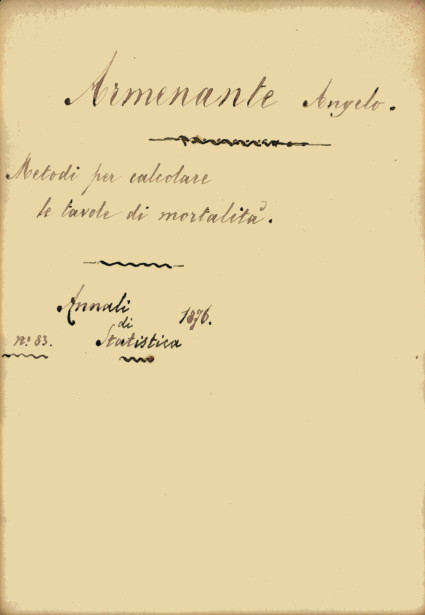 Armenante Angelo.
Metodi per calcolare
le tavole di mortalità.
Annali 1876.
di
nº 83. Statistica